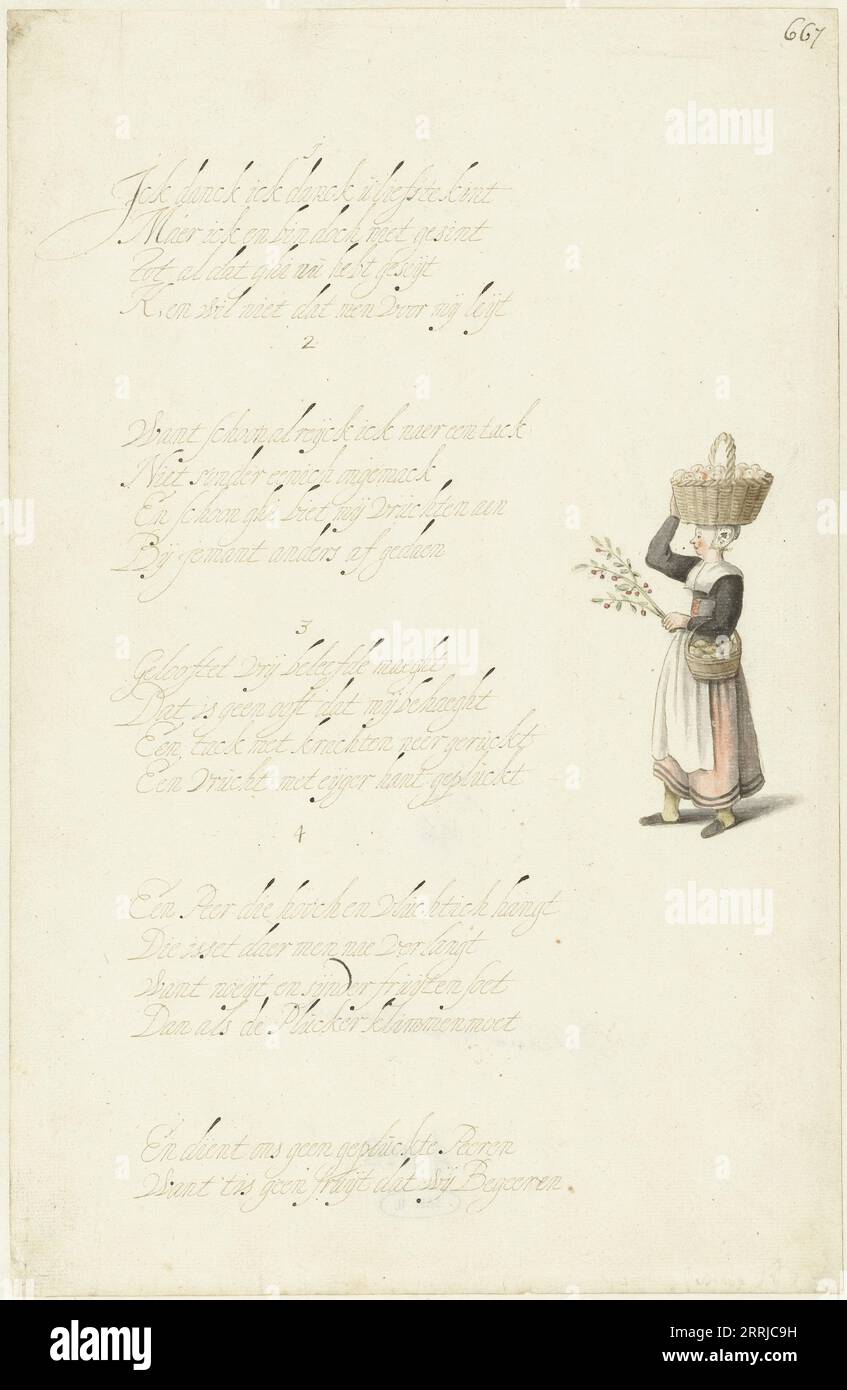 667
1
Ick danck ick danck u liefste kint
Maer ick en bin doch niet gesint
Tot al dat ghi nu hebt geseyt
K, en wil niet dat men voor mij leijt
2
Want schoon al reijck ick naer een tack
Niet sonder eenich ongemack
En schoon ghi biet mij vruchten aen
Bij jemant anders af gedaen
3
Gelooftet vrij beleefde maeght
Dat is geen ooft dat mij behaeght
Een, tack met krachten neer geruckt
Een vrucht met eijger hant gepluckt
4
Een Peer die hooch en vluchtich hangt
Die isset daer men nae verlangt
Want noeijt en sijnder fruijten soet
Dan als de Plucker klimmen moet
En dient ons geen gepluckte Peeren
Want tis geen fruijt dat wij Begeeren
alamy
alamy
alamy
alamy
alamy
Image ID: 2RRJC9H
www.alamy.com